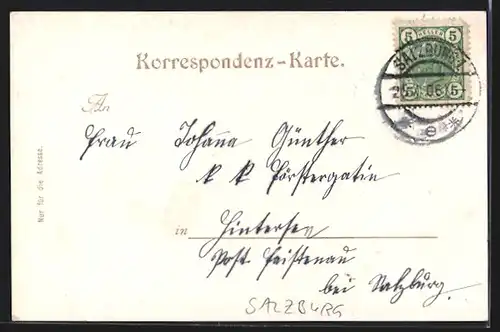 Korrespondenz-Karte.
5 HELLER 5
SALZBURG 1
5 5
An
Frau Johana Günther
k k Förstergatin
in Hintersee
Post Faistenau
bei Salzburg
SALZBURG
Nur für die Adresse.